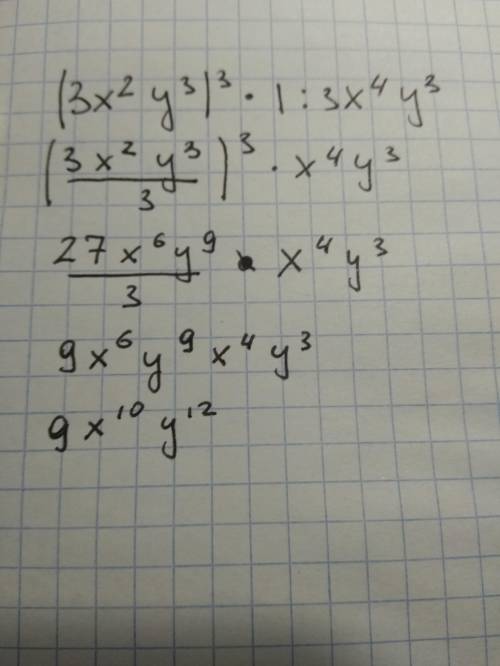 (3x² y³)³ · 1 : 3x⁴ y³
(3x² y³/3)³ · x⁴y³
27x⁶y⁹/3 · x⁴y³
9x⁶y⁹x⁴y³
9x¹⁰y¹²